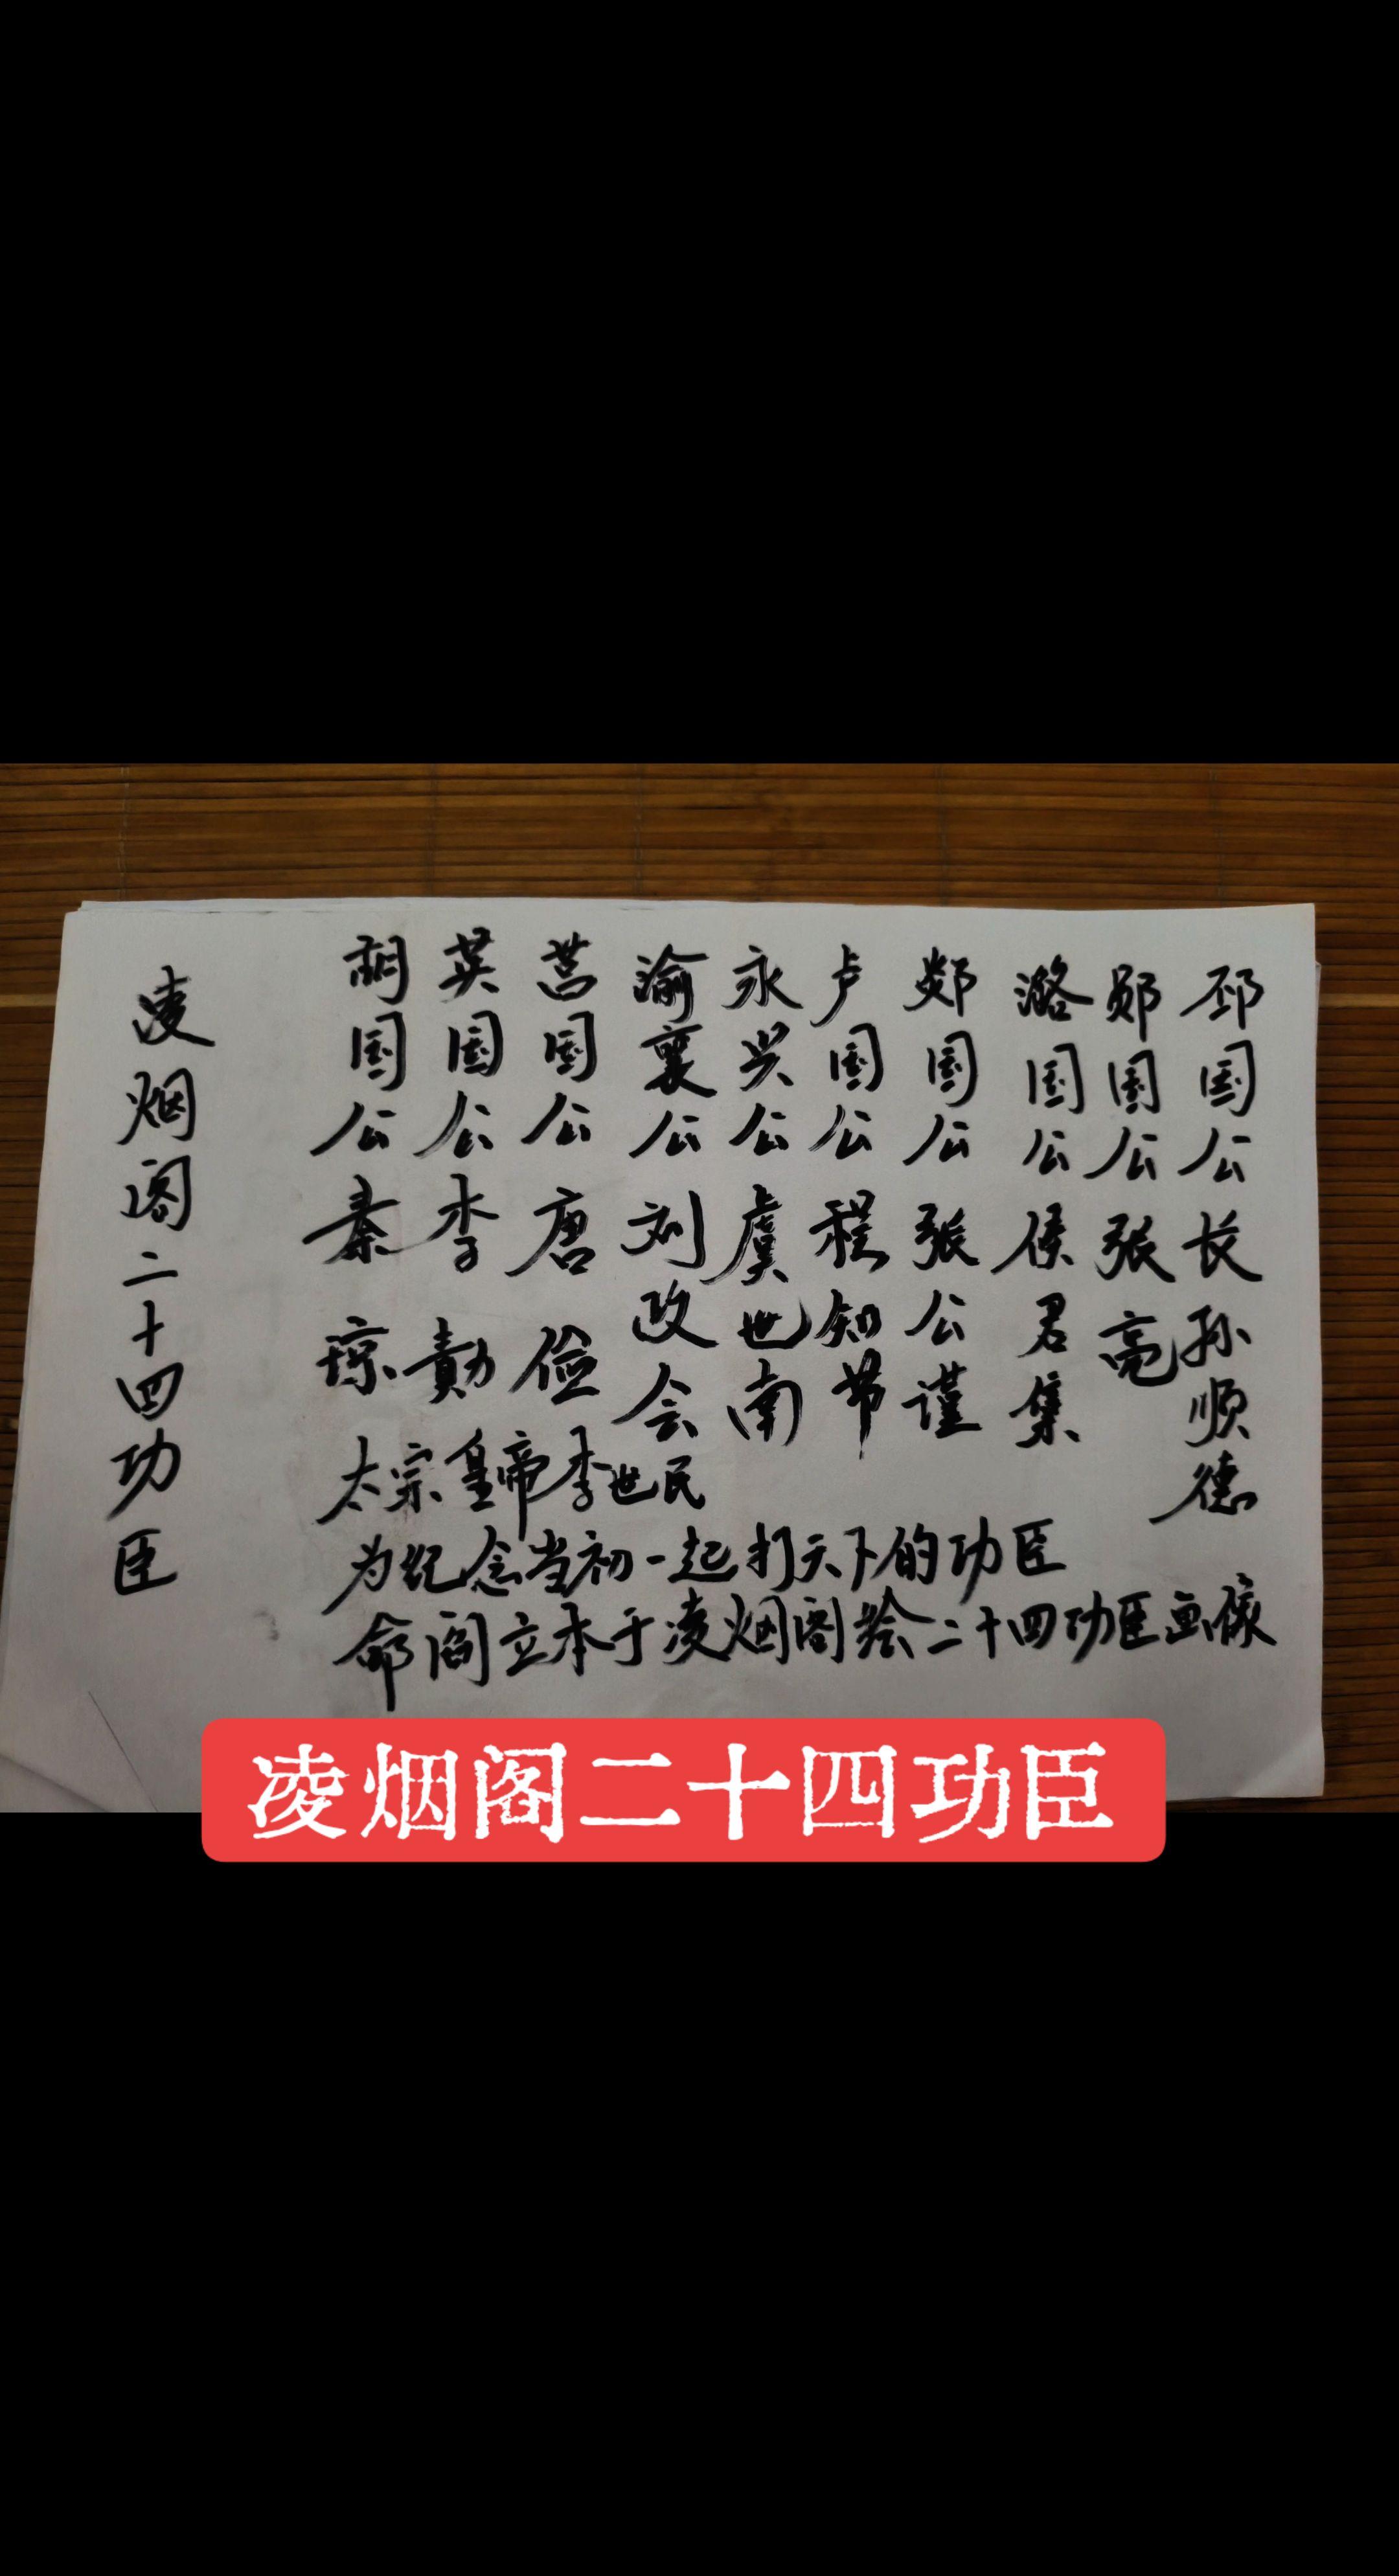 邳国公长孙顺德
郧国公张亮
潞国公侯君集
郯国公张公谨
卢国公程知节
永兴公虞世南
渝襄公刘政会
莒国公唐俭
英国公李勣
胡国公秦琼
太宗皇帝李世民
为纪念当初一起打天下的功臣
命阎立本于凌烟阁绘二十四功臣画像
凌烟阁二十四功臣
凌烟阁二十四功臣